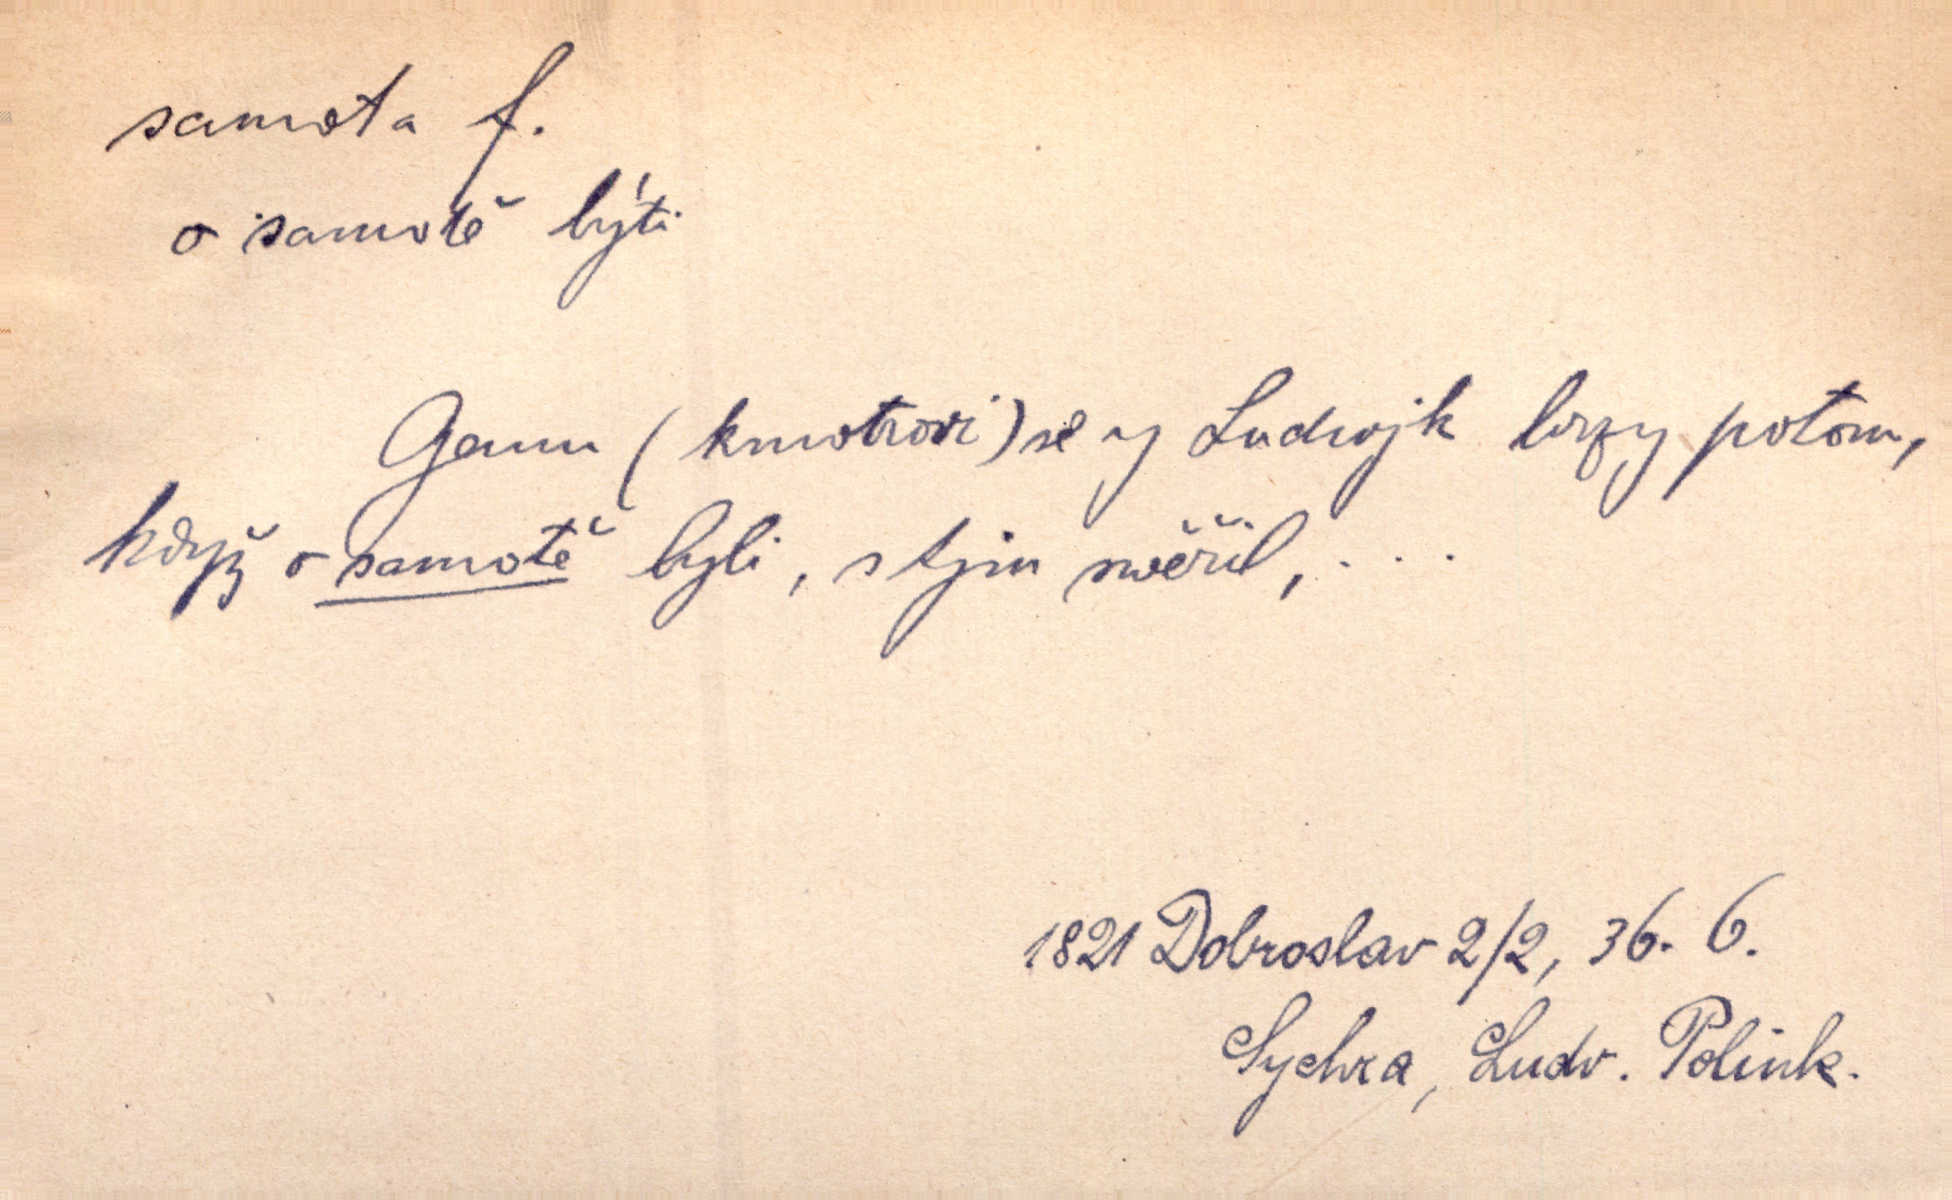 samota f.
o samotě býti
Gemu (kmotrovi) se y Ludwjk brzy potom,
když o samotě byli, s tjm swěřil, . . .
1821 Dobroslav 2/2, 36. 6.
Sychra, Ludv. Polink.